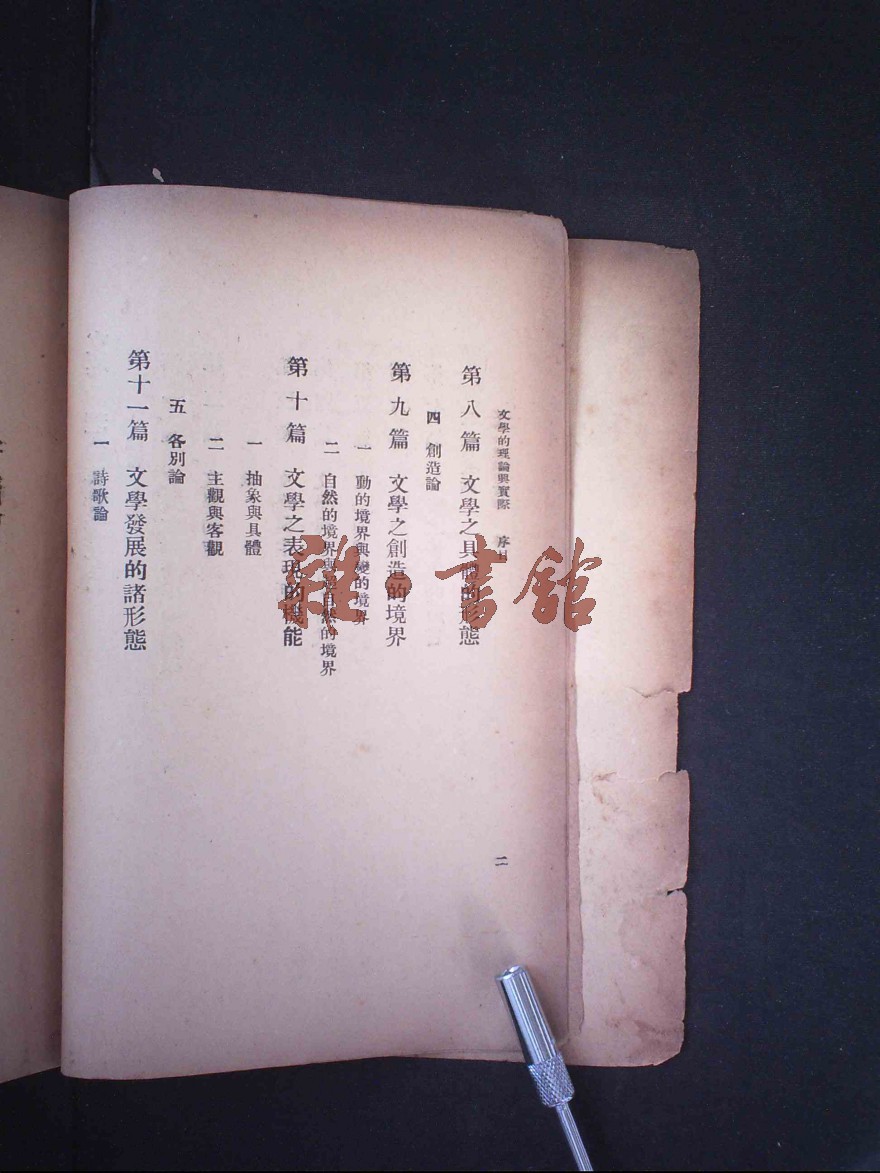 文學的理論與實際 序目
第八篇 文學之具體的形態
四 創造論
第九篇 文學之創造的境界
一 動的境界與變的境界
二 自然的境界與超自然的境界
第十篇 文學之表現的機能
一 抽象與具體
二 主觀與客觀
五 各別論
第十一篇 文學發展的諸形態
一 詩歌論
二
雜·書館